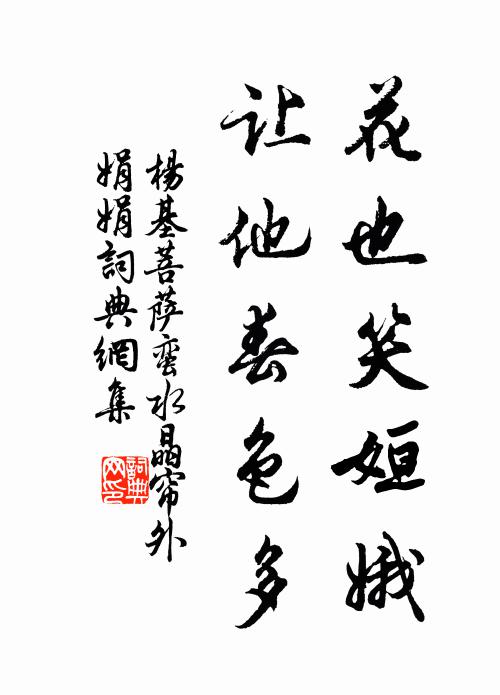 花也笑姮娥
让他春色多
楊基菩萨蛮水晶帘外
娟娟詞典網集
詞典網印